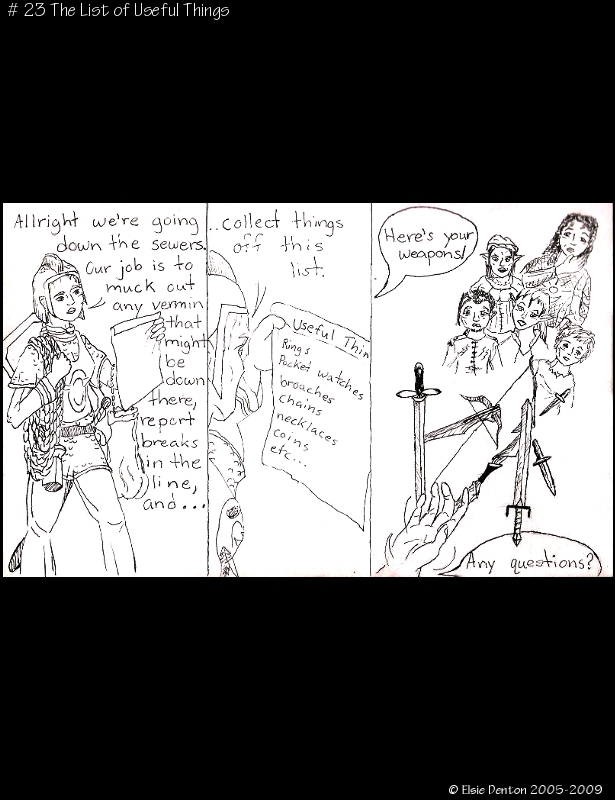 # 23 The List of Useful Things
Allright we're going
down the sewers.
Our job is to
muck out
any vermin
that
might
be
down
there,
report
breaks
in the
line,
and...
..collect things
off this
list.
Useful Thin
Rings
Pocket watches
broaches
chains
necklaces
coins
etc...
Here's your
weapons!
Any questions?
© Elsie Denton 2005-2009